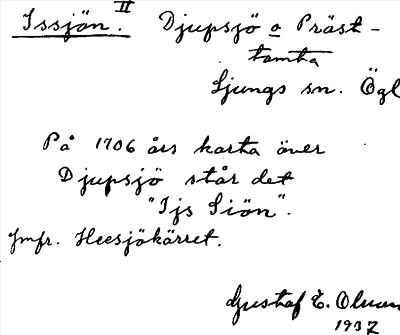 Issjön. II Djupsjö o Präst-
tomta
Ljungs sn. Ögl
På 1706 års karta över
Djupsjö står det
"Ijs Siön".
Jmfr. Heesjökärret.
Gustaf E. Olsson
1937